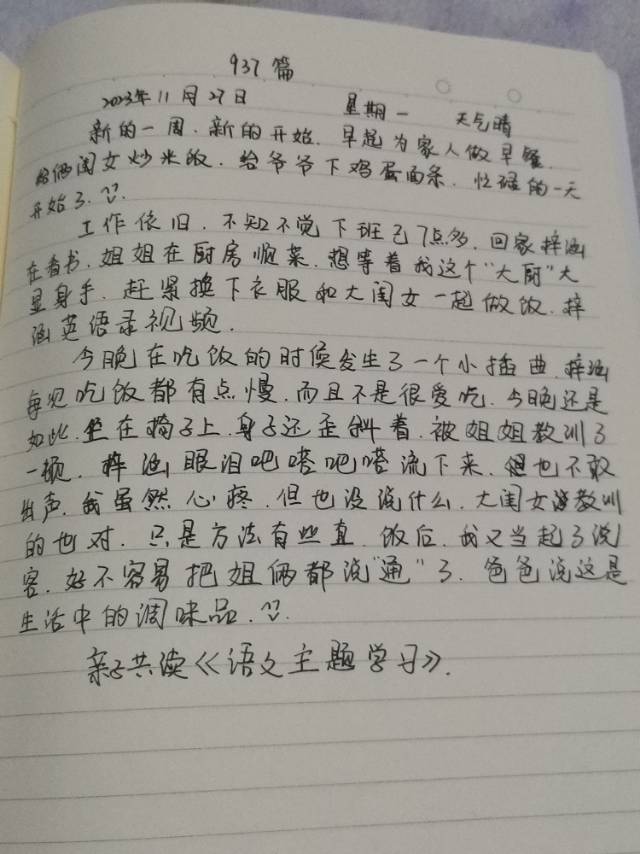 937篇
2023年11月27日 星期一 天气晴
新的一周.新的开始.早起为家人做早餐.
给俩闺女炒米饭.给爷爷下鸡蛋面条.忙碌的一天
开始了.
工作依旧.不知不觉下班已7点多.回家梓涵
在看书.姐姐在厨房顺菜.想等着我这个"大厨"大
显身手.赶紧换下衣服和大闺女一起做饭.梓
涵英语录视频.
今晚在吃饭的时候发生了一个小插曲.梓涵
每次吃饭都有点慢.而且不是很爱吃.今晚还是
如此.坐在椅子上.身子还歪斜着.被姐姐教训了
一顿.梓涵眼泪吧嗒吧嗒流下来.但也不敢
出声.我虽然心疼.但也没说什么.大闺女教训
的也对.只是方法有些直.饭后.我又当起了说
客.好不容易把姐俩都说"通"了.爸爸说这是
生活中的调味品.
亲子共读《语文主题学习》.